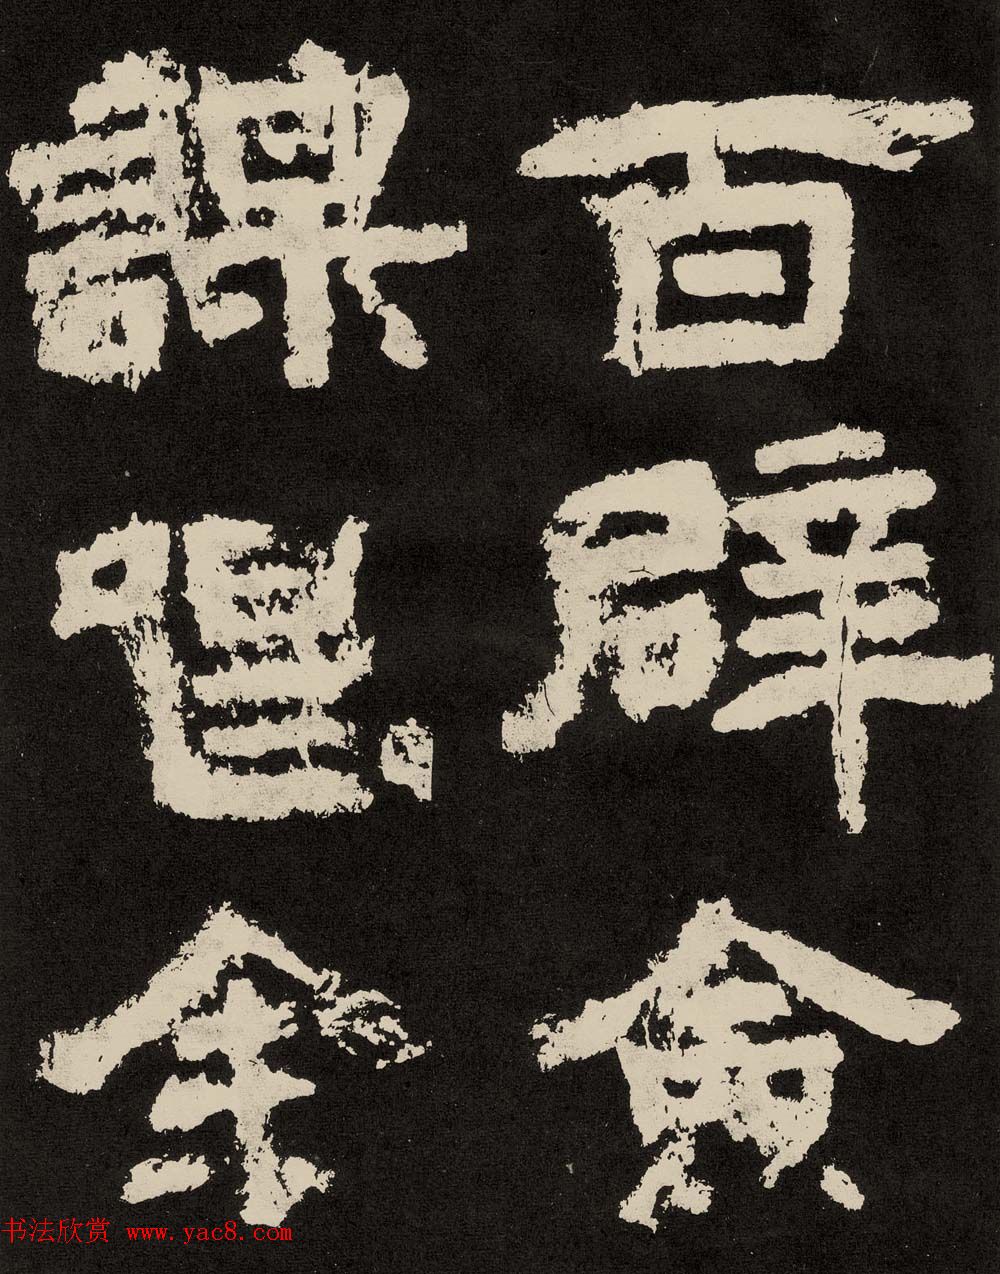 百辟僉
謀唱余
书法欣赏 www.yac8.com